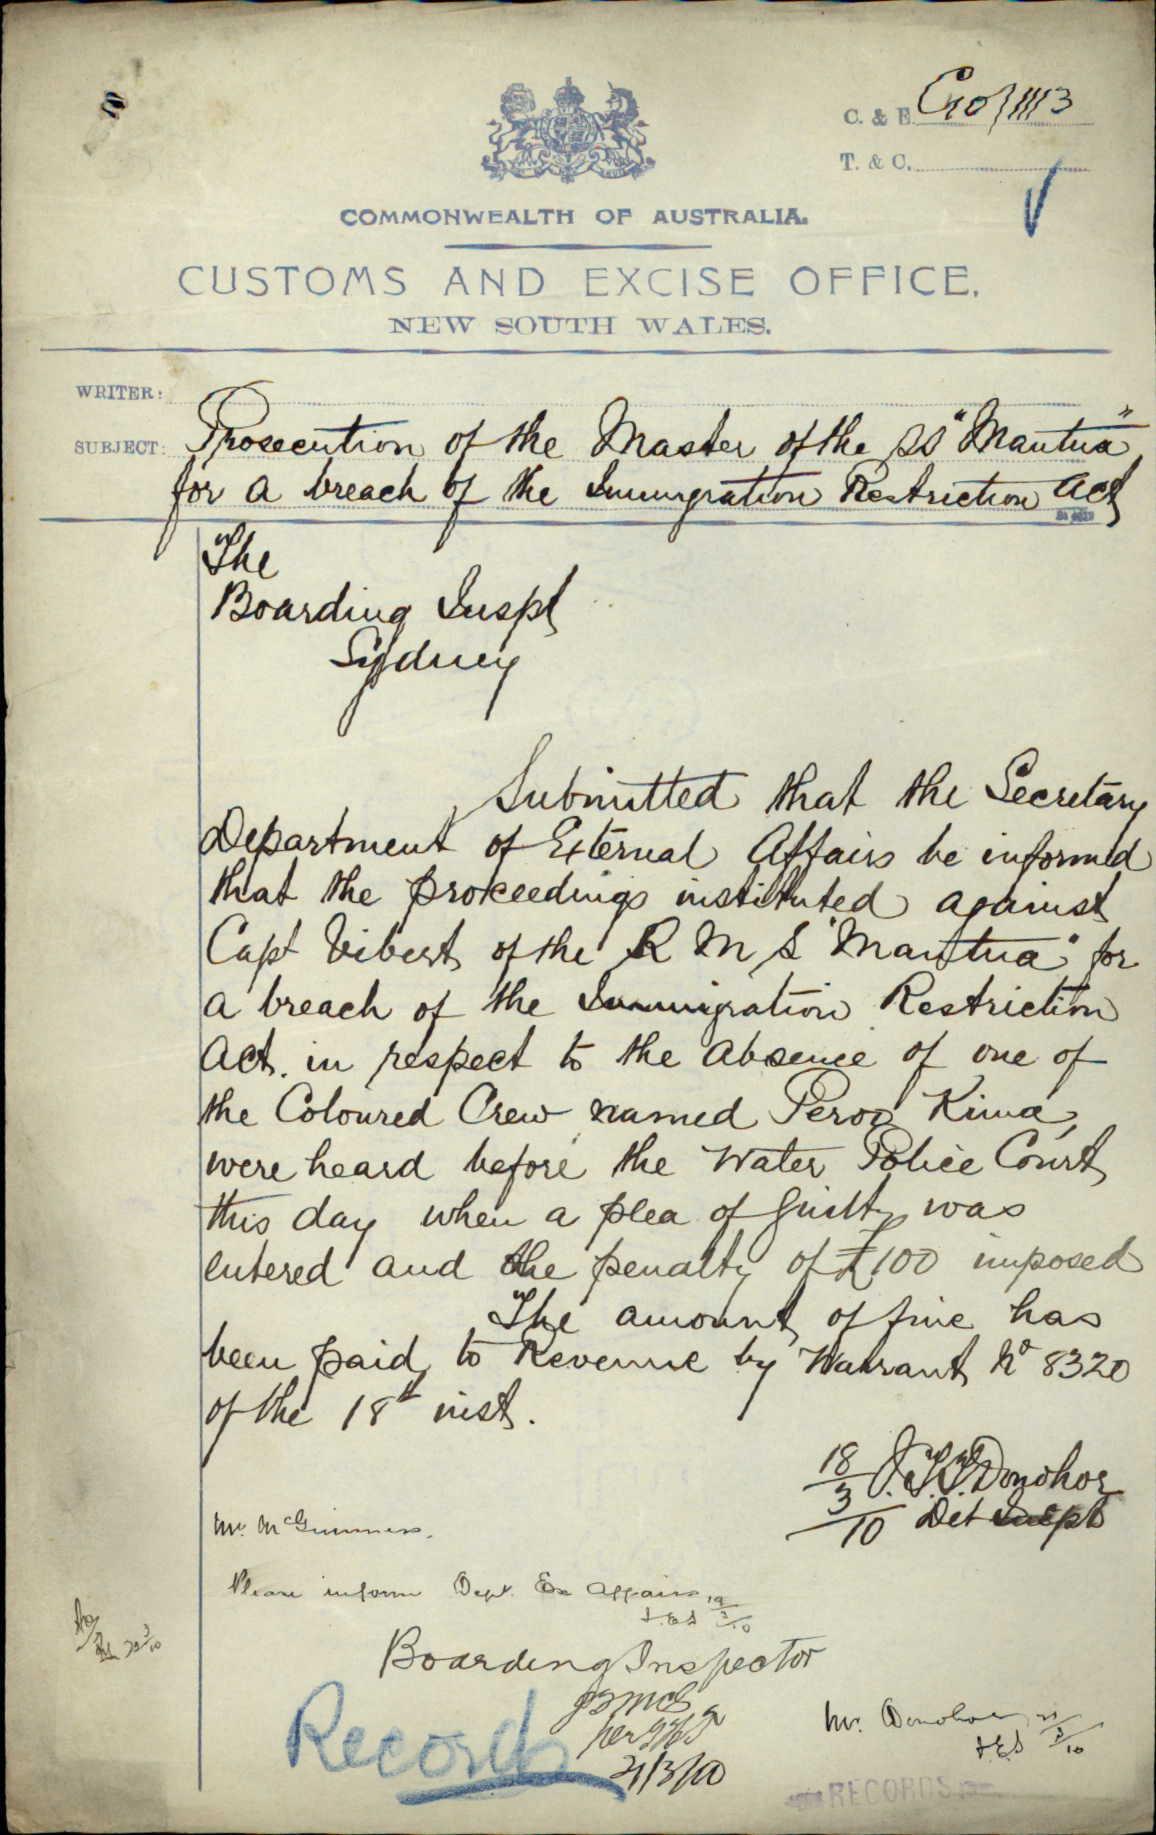 C. & E. C10/1113
T. & C.
COMMONWEALTH OF AUSTRALIA.
CUSTOMS AND EXCISE OFFICE.
NEW SOUTH WALES.
WRITER:
SUBJECT: Prosecution of the Master of the SS "Mantua"
for a breach of the Immigration Restriction Act
The
Boarding Inspt
Sydney
Submitted that the Secretary
Department of External Affairs be informed
that the proceedings instituted against
Capt Vibert of the R M S "Mantua" for
a breach of the Immigration Restriction
Act. in respect to the absence of one of
the Coloured Crew named Peroo Kima,
were heard before the Water Police Court
this day when a plea of guilty was
entered and the penalty of £100 imposed
The amount of fine has
been paid to Revenue by Warrant No 8320
of the 18th inst.
18/3/10 J.T.T. Donohoe
Det Inspt
Mr. McGuinness.
Please inform Dept. Ex Affairs
Boarding Inspector
21/3/10
Mr. Donohoe
Records
RECORDS